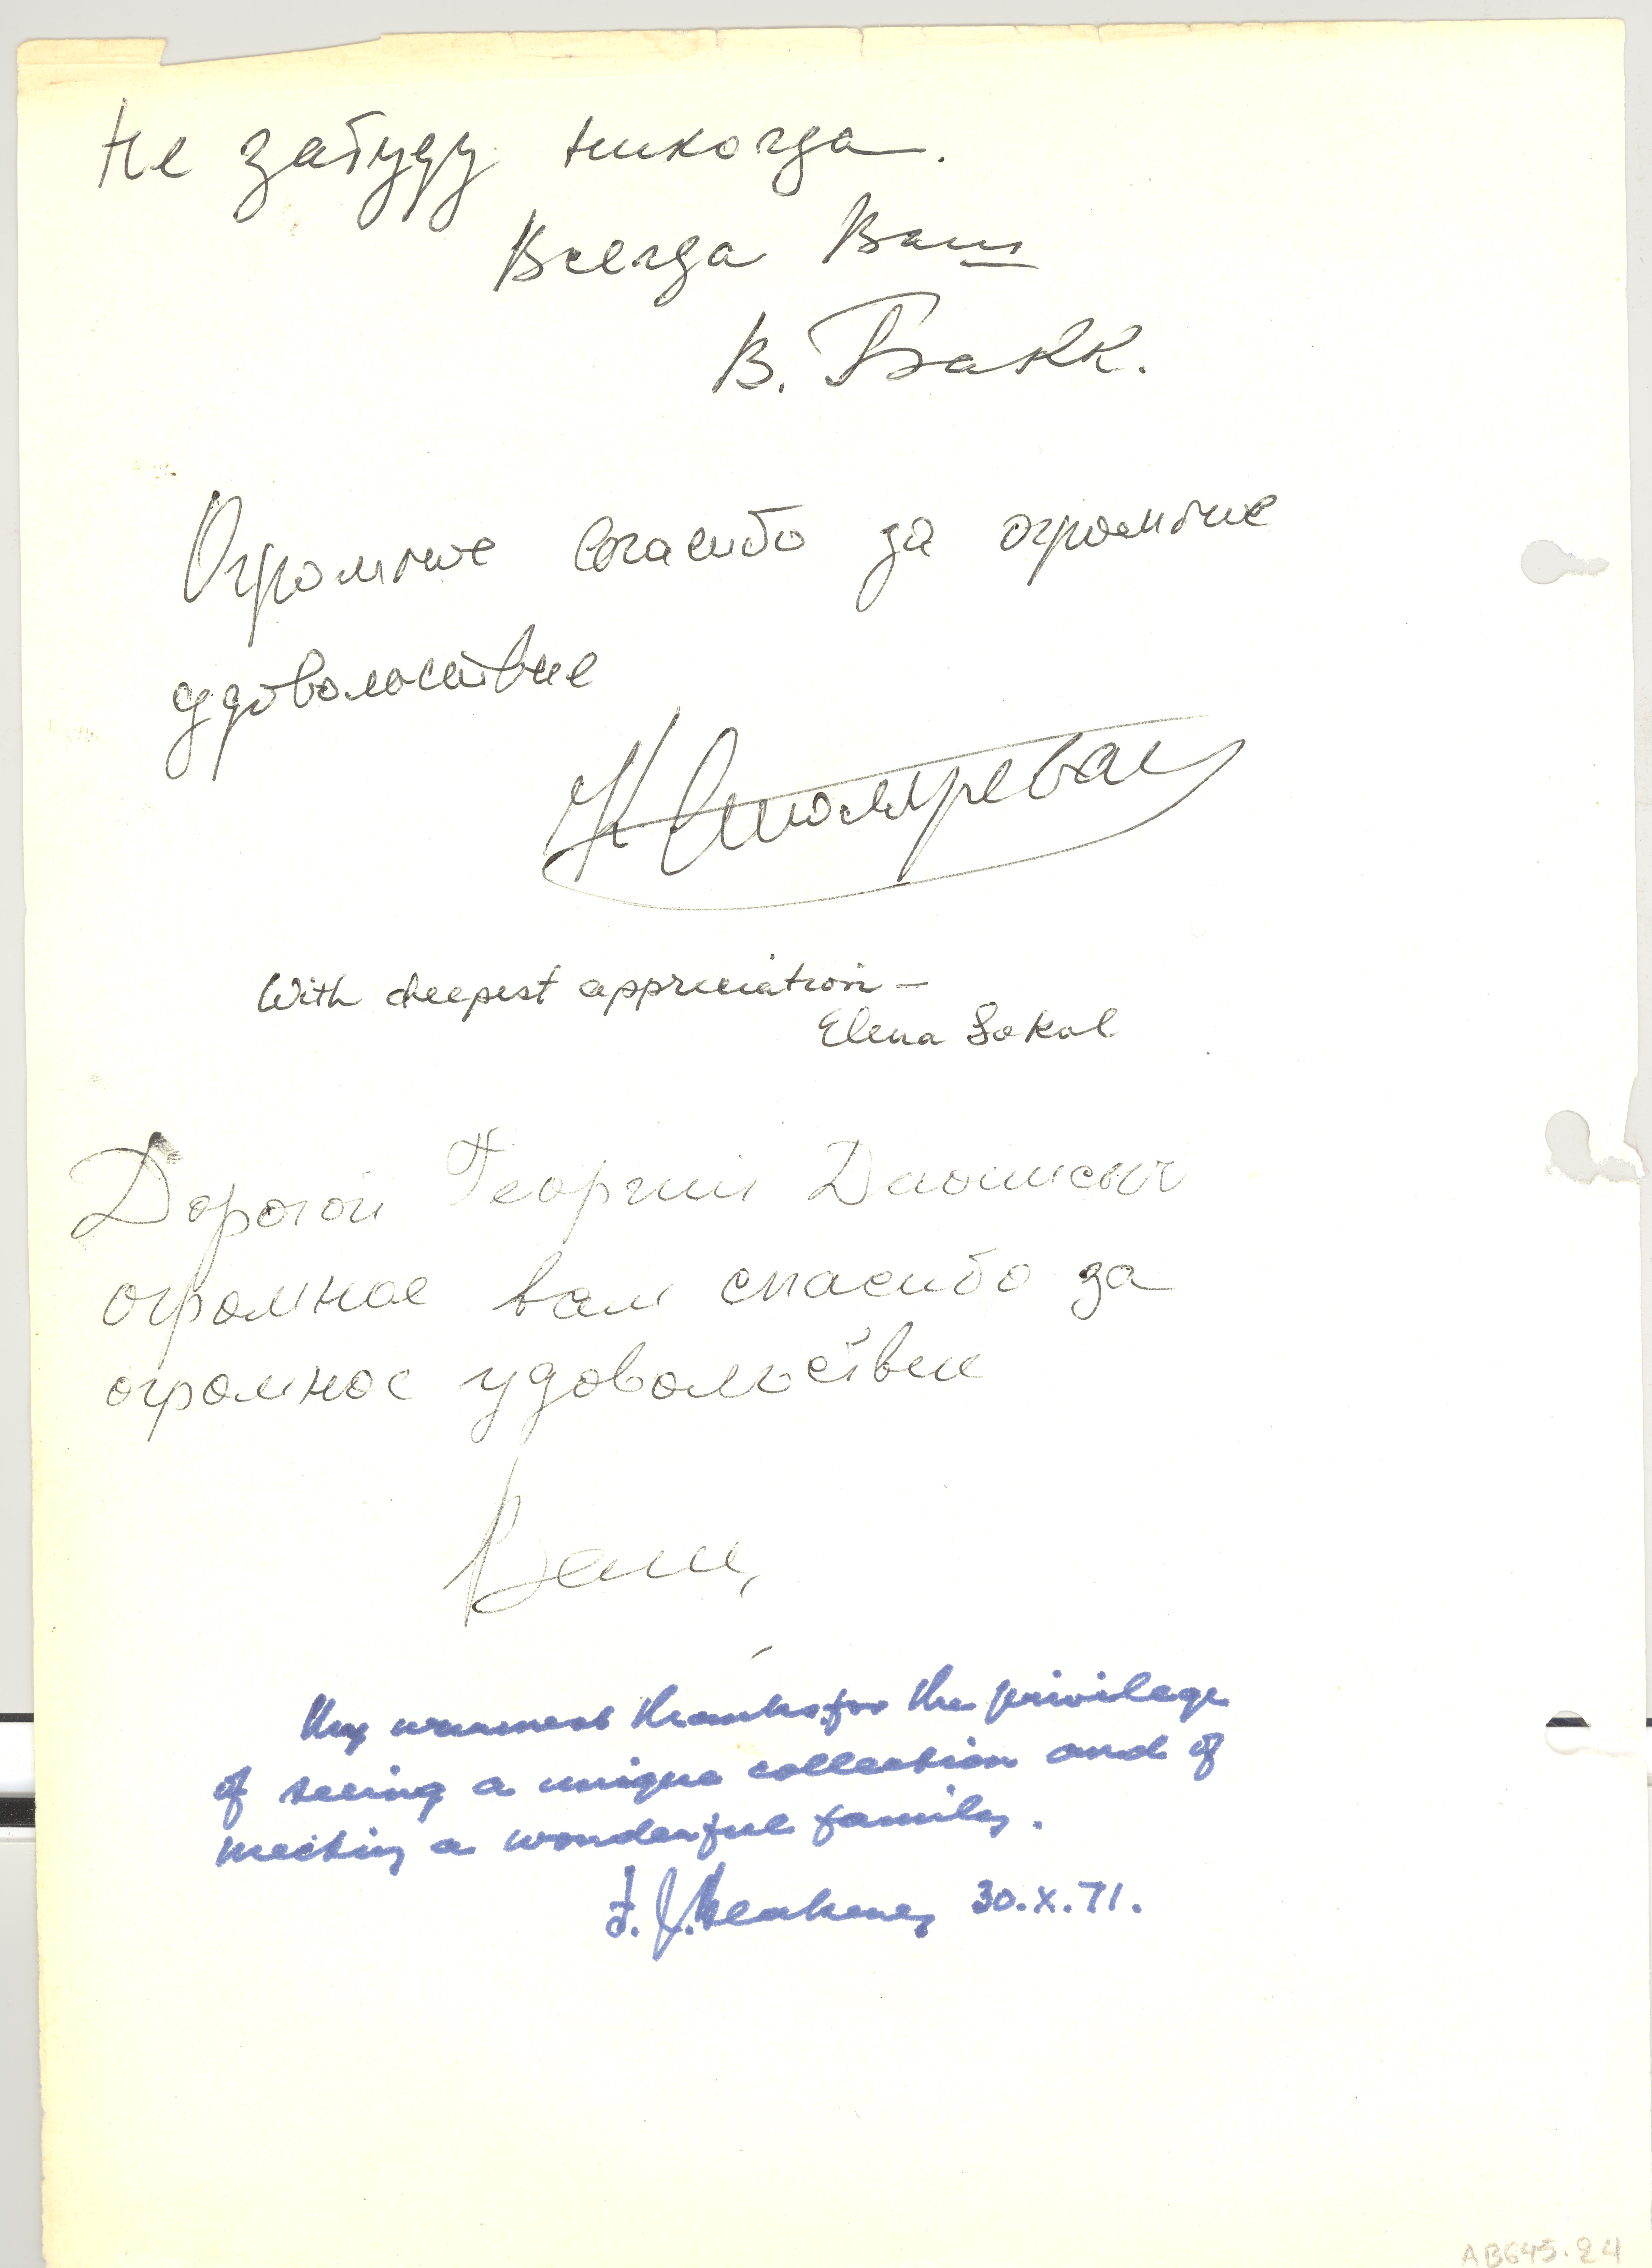 Не забуду никогда.
Всегда Ваш
В. Банк.
Огромное спасибо за огромное
удовольствие
With deepest appreciation –
Elena Sokol
Дорогой Георгий Дионисыч
огромное вам спасибо за
огромное удовольствие
Ваш,
My warmest thanks for the privilege
of seeing a unique collection and of
meeting a wonderful family.
30.X.71.
AB645.24